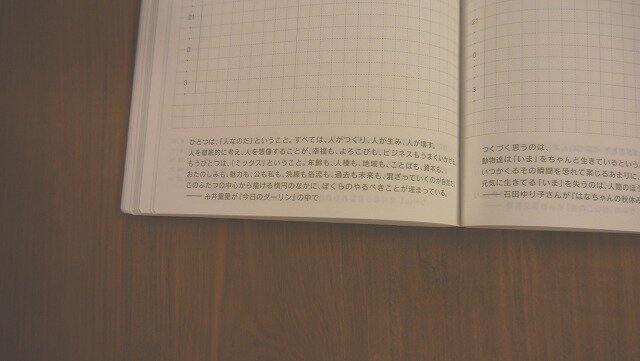 21
0
3
ひとつは、「人なのだ」ということ。すべては、人がつくり、人が生み、人が壊す。
人を徹底的に考え、人を想像することが、幸福も、よろこびも、ビジネスもうまくいかせる。
もうひとつは、「ミックス」ということ。年齢も、人種も、地域も、ことばも、資本も、
おたのしみも、魅力も、公も私も、洗練も俗流も、過去も未来も、混ざっていくのが自然だ。
このふたつの中心から描ける楕円のなかに、ぼくらのやるべきことが埋まっている。
——糸井重里が『今日のダーリン』の中で
21
0
3
つくづく思うのは、
動物達は「いま」をちゃんと生きているという
いつかくるその瞬間を恐れて案じるあまりに、
元気に生きてる「いま」を失うのは、人間のほう
——石田ゆり子さんが『はなちゃんの夏休み